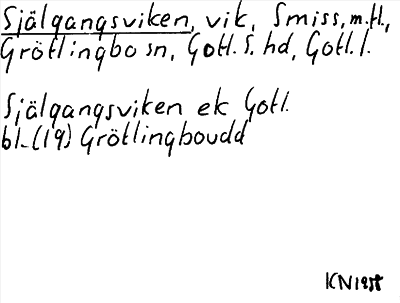 Själgangsviken, vik, Smiss, m.fl.,
Grötlingbo sn, Gotl. S. hd, Gotl. l.
Själgangsviken ek Gotl.
bl. (19) Grötlingboudd
KN 1958